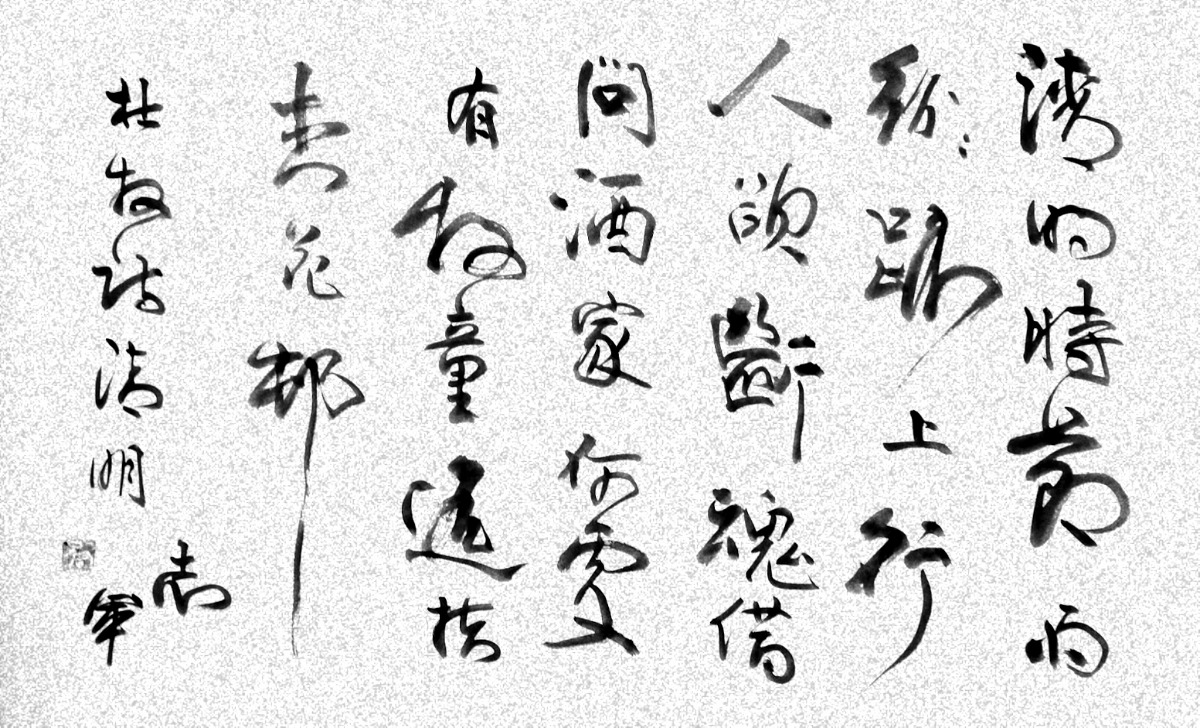 清明時節雨
紛々路上行
人欲斷魂借
問酒家何處
有牧童遥指
杏花邨
杜牧詩清明